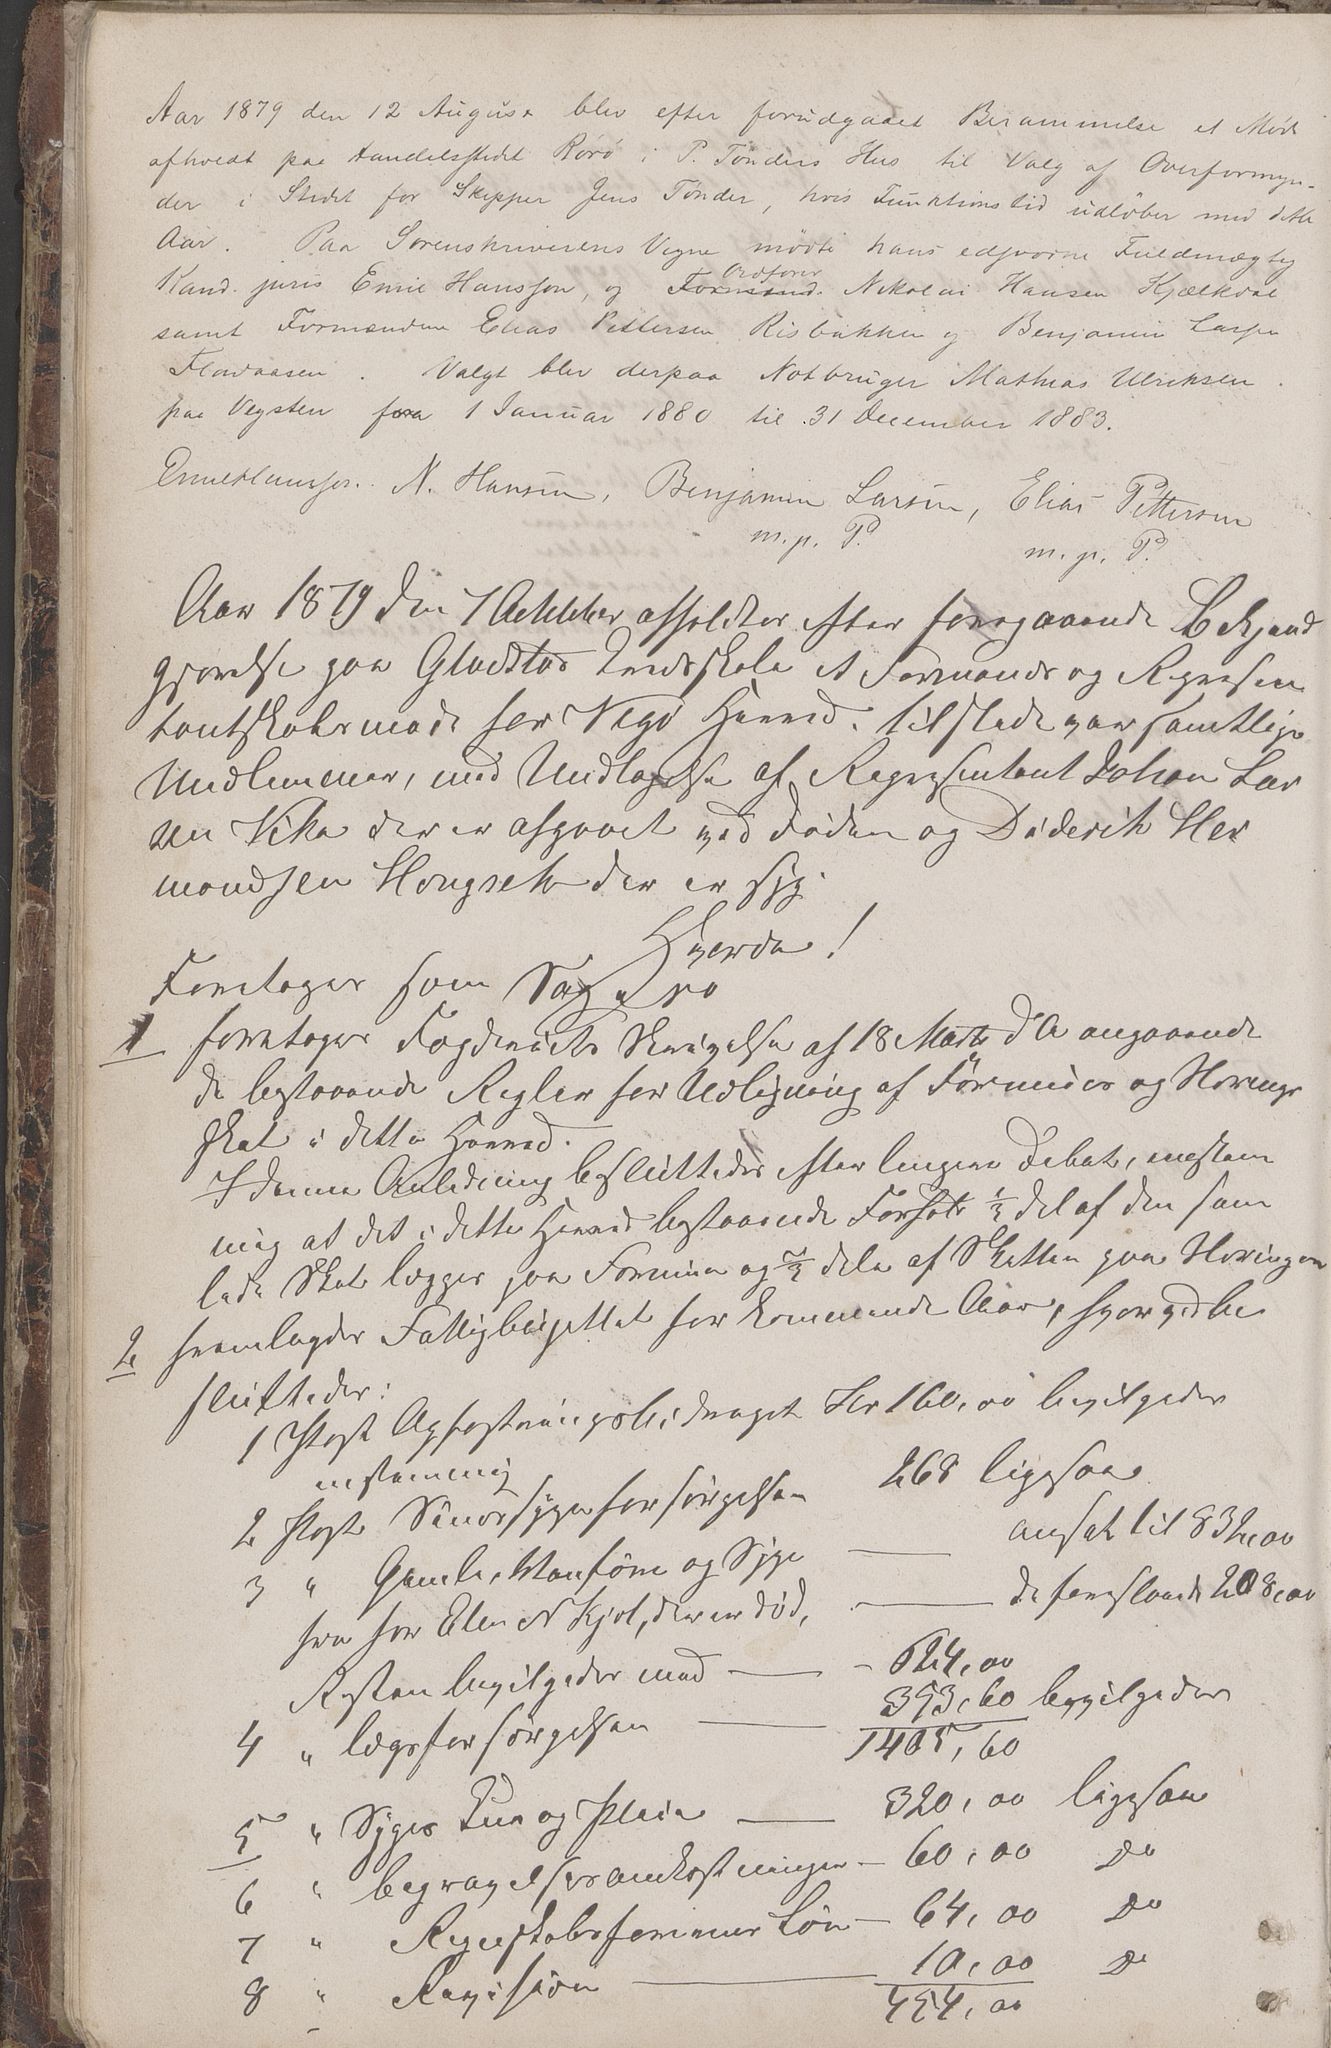 Aar 1879 den 12 August blev efter forudgaaet Berammelse et Møde
afholdt paa Handelsstedet Rørø i P. Tønders Hus til Valg af Overformyn-
der i Stedet for Skipper Jens Tønder, hvis Funktionstid udløber med dette
Aar. Paa Sorenskriverens Vegne mødte hans edsvorne Fuldmægtig
Kand. juris Emil Hansson, og Formand Ordfører Nikolai Hansen Kjælkdal
samt Formændene Elias Pettersen Risbakken og Benjamin Larsen
Flovaasen. Valgt blev derpaa Notbruger Mathias Ulriksen
paa Vegsten fra 1 Januar 1880 til 31 December 1883.
Emil Hansson. N. Hansen, Benjamin Larsen, Elias Pettersen
m. p. P. m. p. P.
Aar 1879 den 7 Oktober afholdtes efter foregaaende Bekjend
gjørelse paa Gladstad Kredsskole et Formands og Represen
tantskabsmøde for Vegø Herred. tilstede var samtlige
Medlemmer, med Undtagelse af Representant Johan Lar
sen Vika der er afgaaet ved Døden og Diderik Her
mandsen Hongseth der er syg.
Hvorda!
Foretages som Sag No
1 foretoges Fogderiets Skrivelse af 18 Marts d A angaaende
de bestaaende Regler for Udligning af Formues og Nærings
skat i dette Herred.
I denne Anledning besluttedes efter længere Debat, enstem
mig at det i dette Herred bestaaende Forhold 1/3 del af den sam
lede Skat lægges paa Formuen og 2/3 dele af Skatten paa Næringen
2 fremlagdes Fattigbudgettet for kommende Aar, hvorved be
sluttedes:
1 Post Opfostringsbidraget Kr 160,00 bevilgedes
enstemmig
2 Post Sindssygeforsørgelsen 268 ligesaa
3 " Gamle, Vanføre og Syge ansat til 832,00
fra for Elen N Kjol, der er død, de foreslaaede 208,00
Resten bevilgedes med - 624,00
4 " lægsforsørgelsen 353,60 bevilgedes
1405,60
5 " Syges Kur og Pleie 320,00 ligesaa
6 " begravelsesomkostninger - 60,00 Do
7 " Regnskabsførerens Løn - 64,00 Do
8 " Revision 10,00 Do
454,00